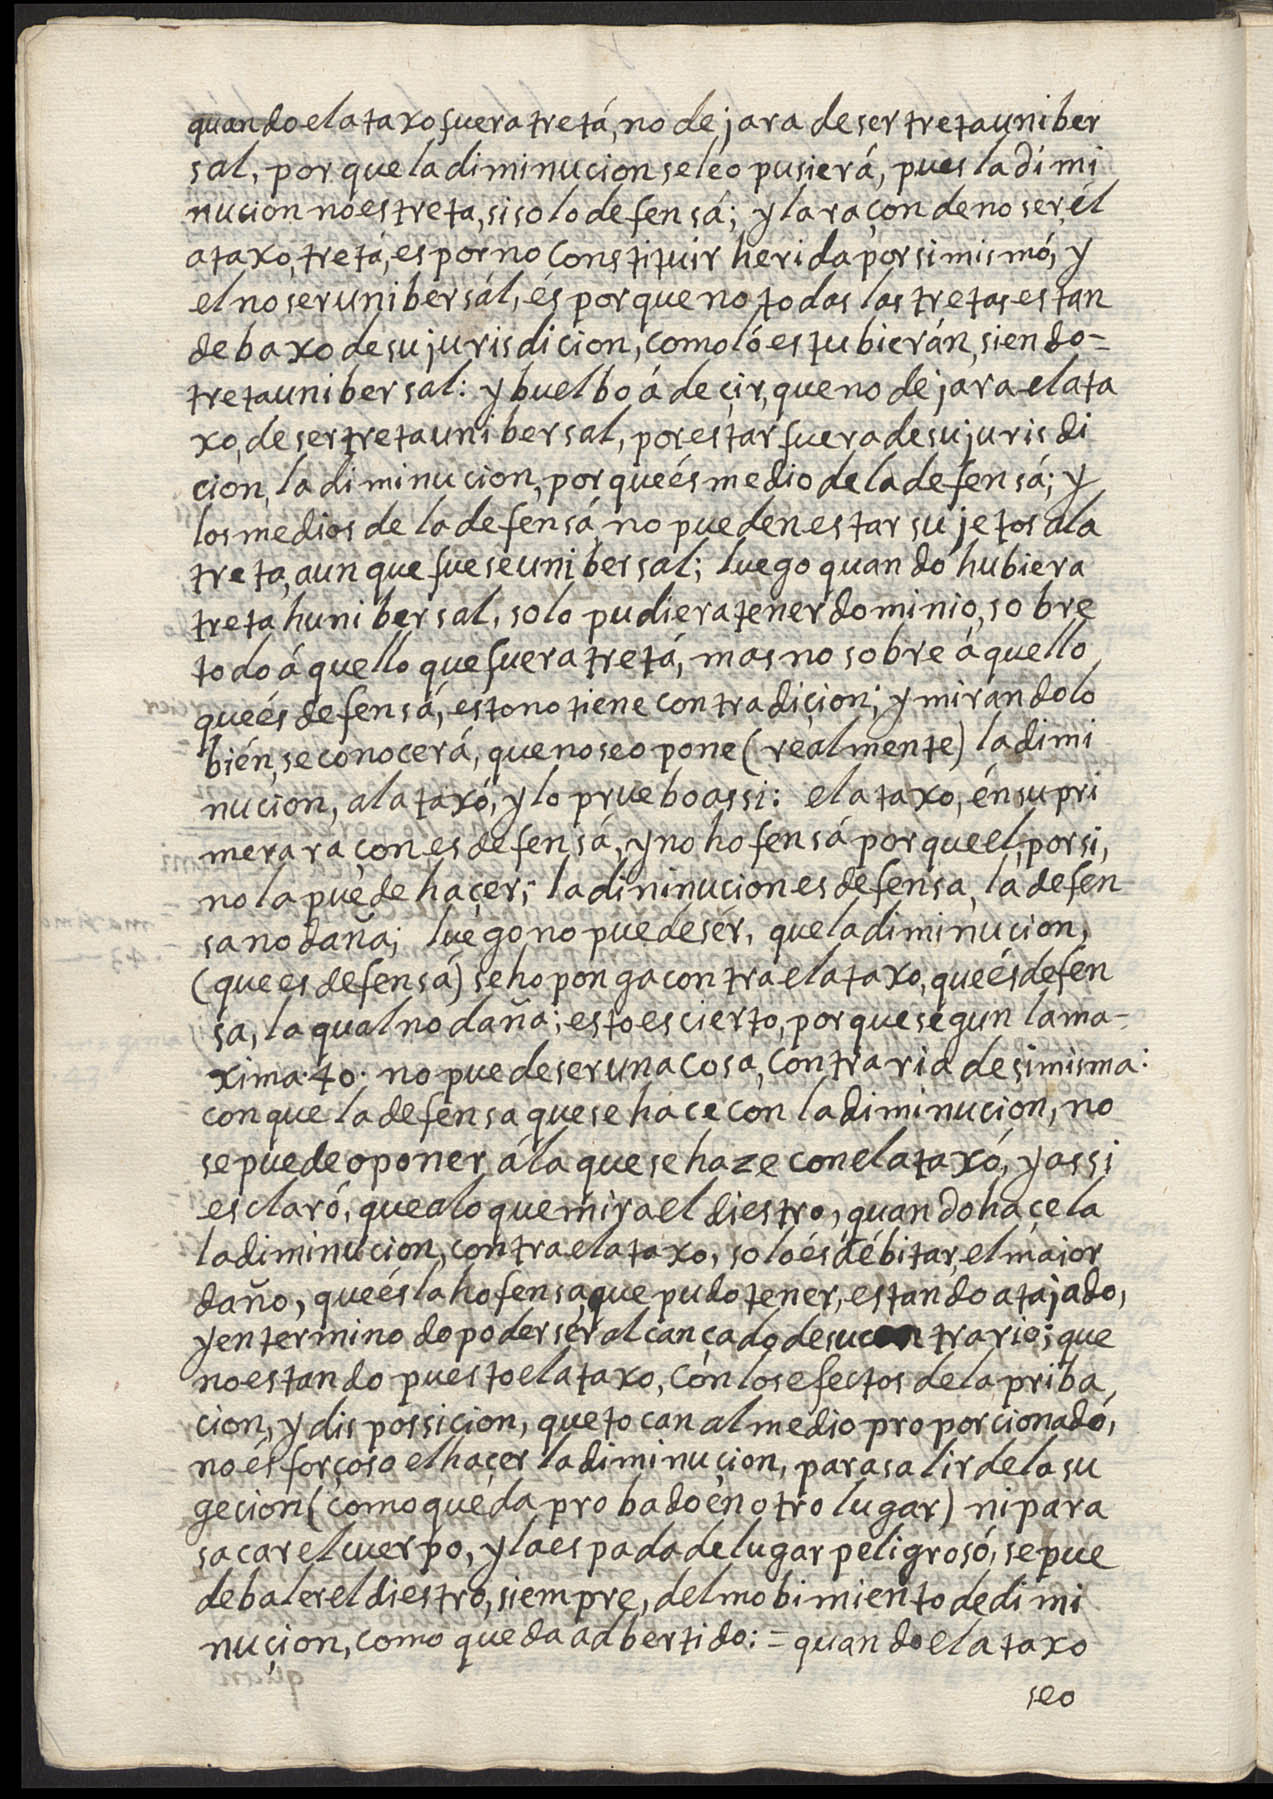 quando el ataxo fuera tretá, no dejara de ser treta uniber
sal, porque la diminucion se le opusierá, pues la dimi
nucion no es treta, si solo defensá; y la raçon de no ser, él
ataxo, tretá, es por no constituir herida por si mismó, y
el no ser unibersál, és porque no todas las tretas estan
debaxo de su jurisdicion, como ló estubierán, siendo =
treta unibersal: y buelbo á deçir, que no dejara el ata
xo, de ser treta unibersal, por estar fuera de su jurisdi
cion, la diminucion, porque és medio de la defensá; y
los medios de la defensá, no pueden estar sujetos a la
treta, aunque fuese unibersal; luego quando hubiera
treta hunibersal, solo pudiera tener dominio, sobre
todo áquello que fuera tretá, mas no sobre áquello,
que és defensá, esto no tiene contradiçion; y mirandolo
bién, se conocerá, que no se opone (realmente) la dimi
nucion, al ataxó, y lo pruebo assi: el ataxo, én su pri
mera raçon es defensá, y no hofensá porque el, por si,
no la puede haçer; la dininucion es defensa, la defen
sa no daña; luego no puede sér, que la diminucion,
(que es defensá) se hoponga contra el ataxo, que és defen
sa, la qual no daña; esto es cierto, porque segun la ma-
xima. 40. no puede ser una cosa, contraria de si misma:
con que la defensa que se háce con la diminucion, no
se puede oponer, á la que se haze con el ataxó, y assi
es claró, que a lo que mira el diestro, quando haçe la
la diminucion, contra el ataxo, solo és débitar, el maior
daño, que és la hofensa, que pudo tener, estando atajado,
y en termino do poder sér alcançado de su contrario; que
no estando puesto el ataxo, con los efectos de la priba
cion, y dispossicion, que tocan al medio proporcionadó,
no és forçoso el haçer la diminuçion, para salir de la su
gecion (como queda probado én otro lugar) ni para
sacar el cuerpo, y la espada de lugar peligrosó, se pue
de baler el diestro, siempre, del mobimiento de dimi
nuçion, como queda adbertido: = quando el ataxo
seo